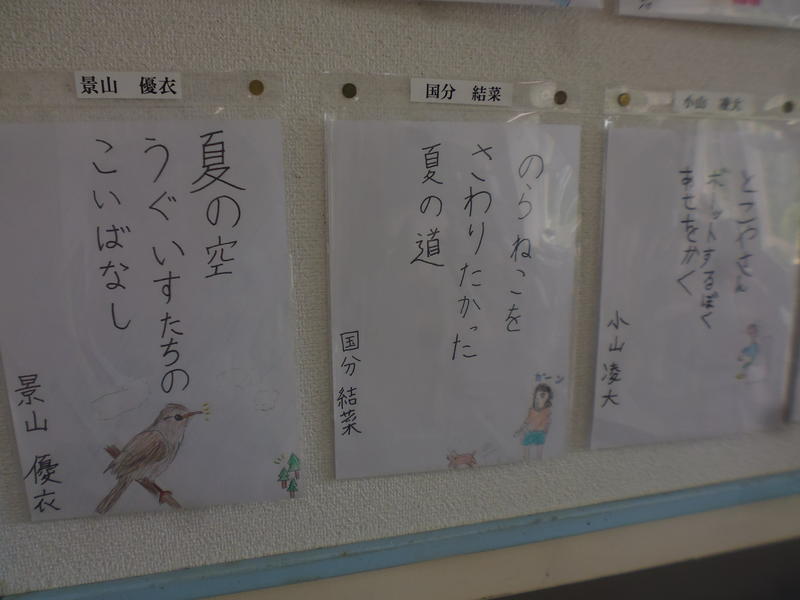 景山 優衣
夏の空
うぐいすたちの
こいばなし
景山 優衣
国分 結菜
のらねこを
さわりたかった
夏の道
国分 結菜
ガーン
小山 凌大
とこやさん
すはをかく
小山凌大